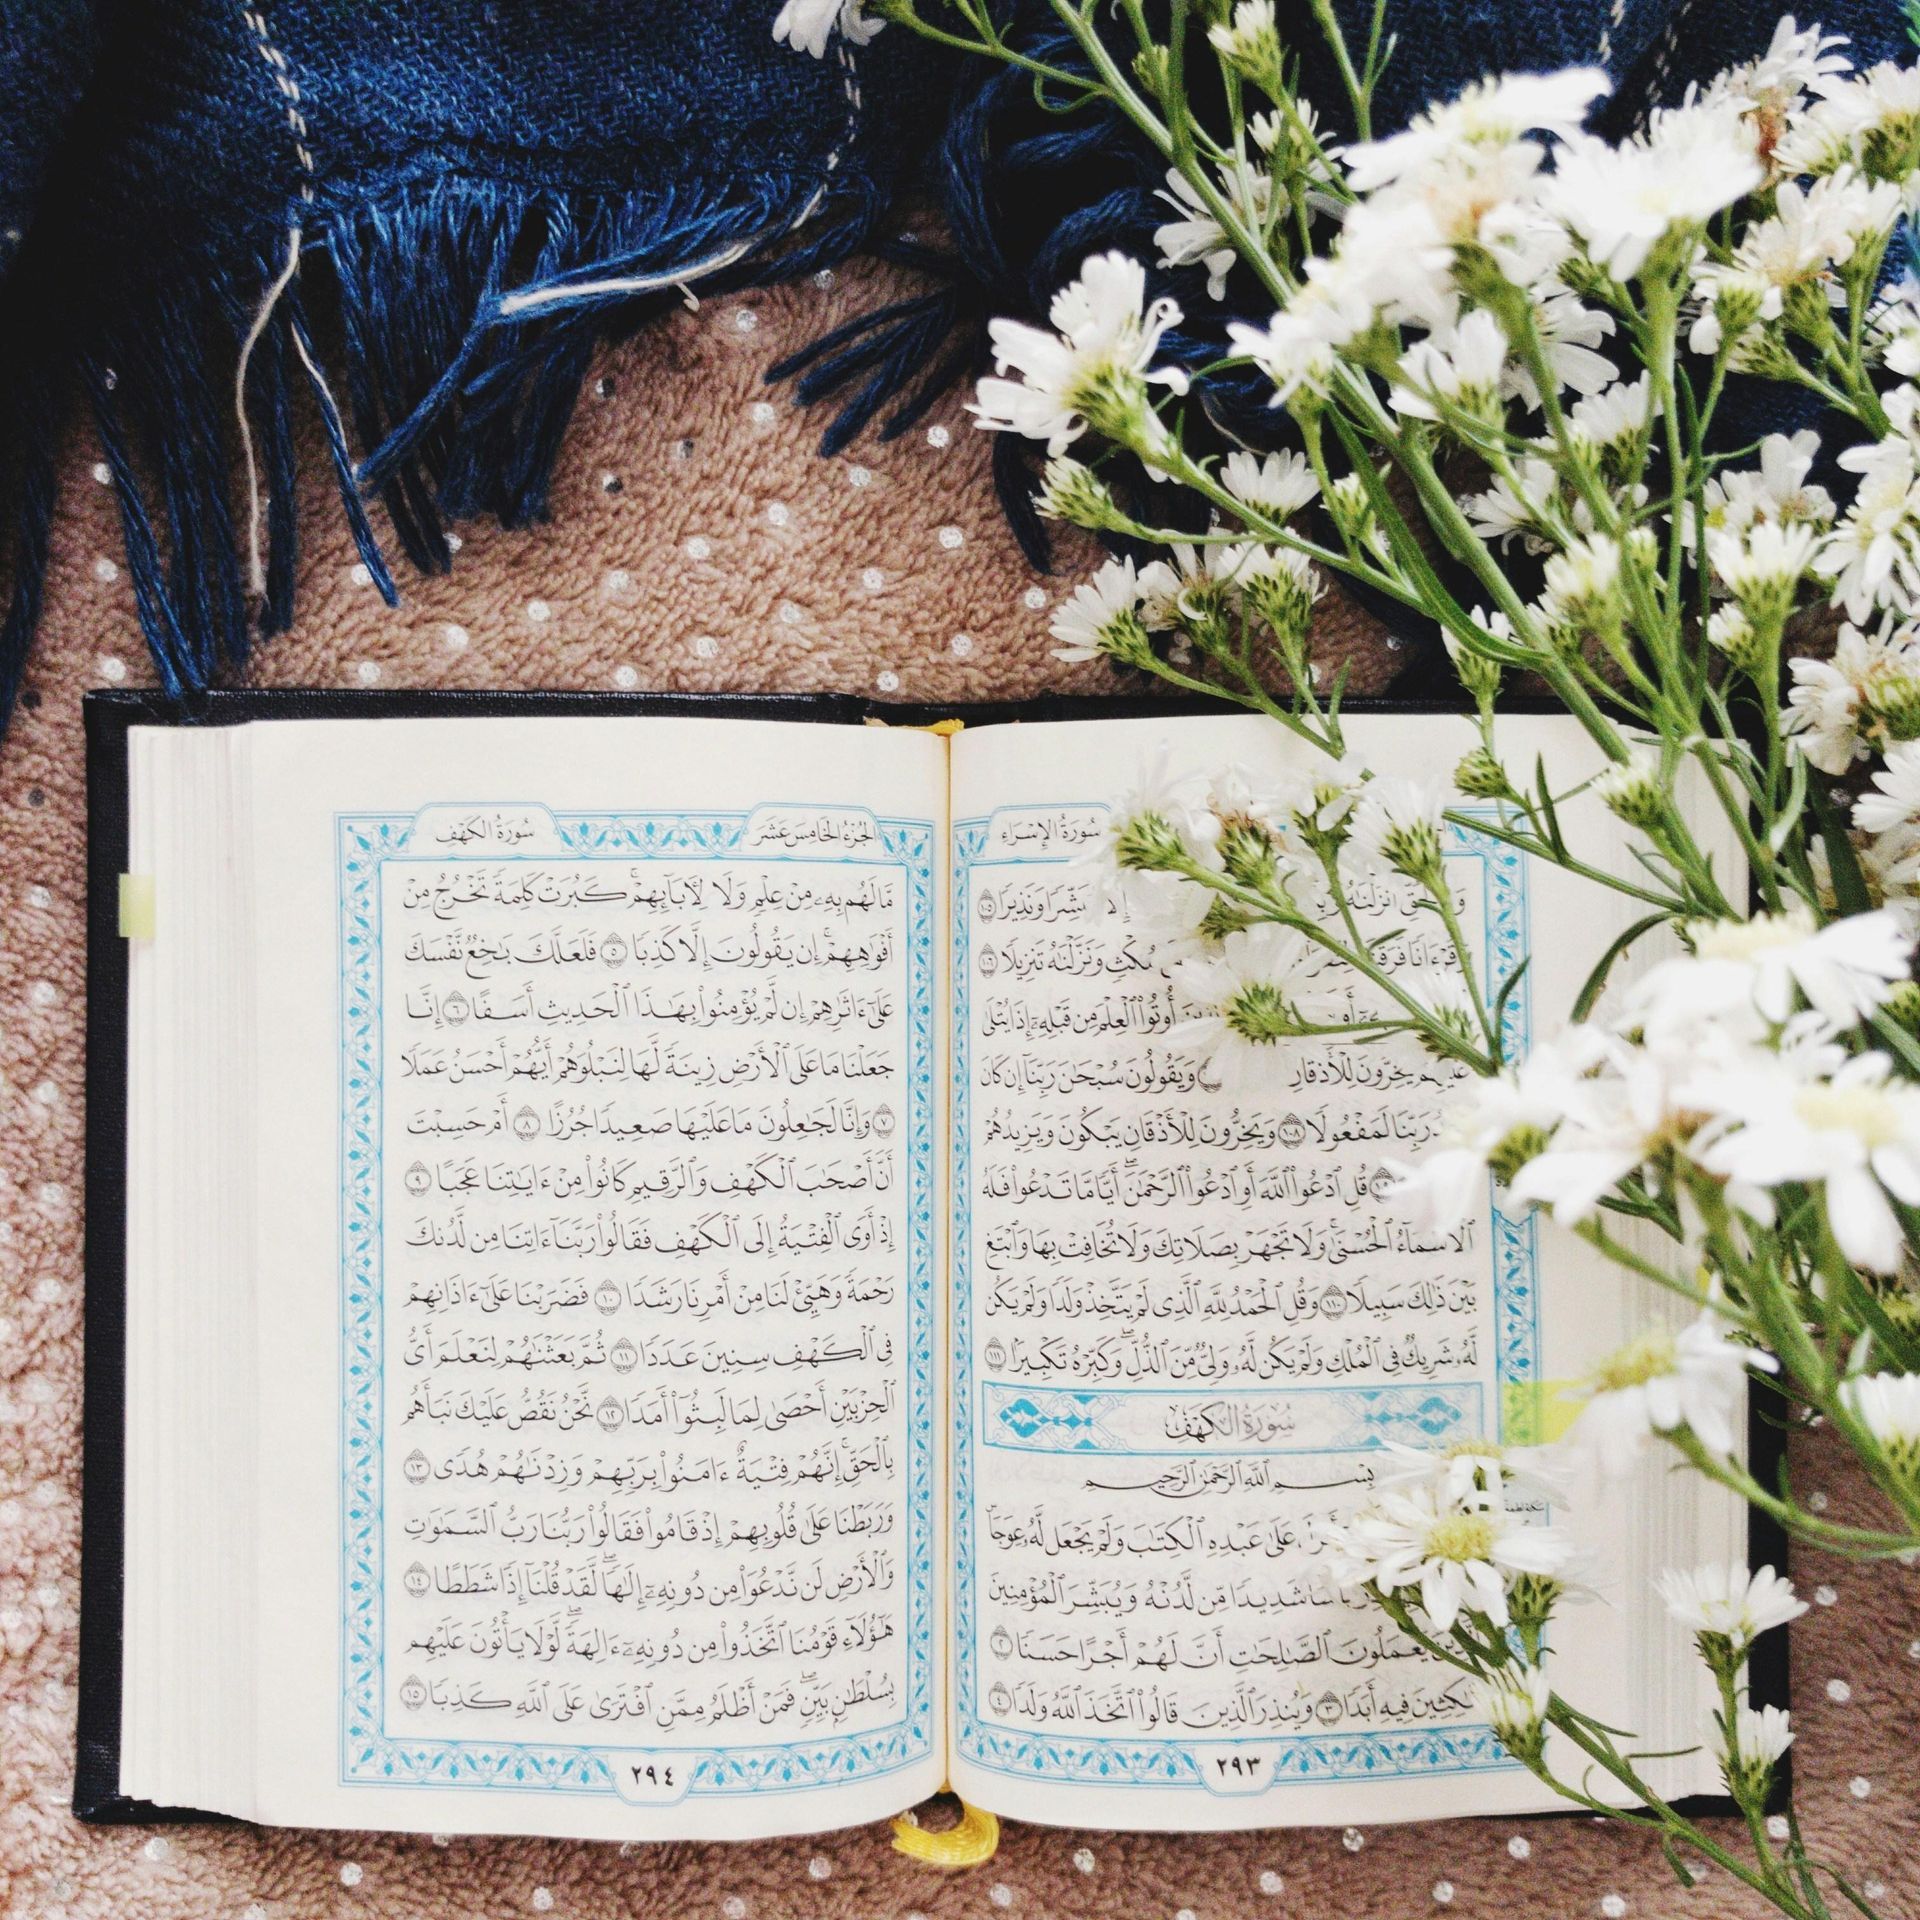 سُورَةُ الإِسْرَاءِ
إِلَّا مُبَشِّرًا وَنَذِيرًا ١٠٥
مُكْثٍ وَنَزَّلْنَٰهُ تَنزِيلًا ١٠٦
أُوتُوا۟ ٱلْعِلْمَ مِن قَبْلِهِۦٓ إِذَا يُتْلَىٰ
عَلَيْهِمْ يَخِرُّونَ لِلْأَذْقَانِ وَيَقُولُونَ سُبْحَٰنَ رَبِّنَآ إِن كَانَ
رَبِّنَا لَمَفْعُولًا ١٠٨ وَيَخِرُّونَ لِلْأَذْقَانِ يَبْكُونَ وَيَزِيدُهُمْ
قُلِ ٱدْعُوا۟ ٱللَّهَ أَوِ ٱدْعُوا۟ ٱلرَّحْمَٰنَ ۖ أَيًّا مَّا تَدْعُوا۟ فَلَهُ
ٱلْأَسْمَآءُ ٱلْحُسْنَىٰ ۚ وَلَا تَجْهَرْ بِصَلَاتِكَ وَلَا تُخَافِتْ بِهَا وَٱبْتَغِ
بَيْنَ ذَٰلِكَ سَبِيلًا ١١٠ وَقُلِ ٱلْحَمْدُ لِلَّهِ ٱلَّذِى لَمْ يَتَّخِذْ وَلَدًا وَلَمْ يَكُن
لَّهُۥ شَرِيكٌ فِى ٱلْمُلْكِ وَلَمْ يَكُن لَّهُۥ وَلِىٌّ مِّنَ ٱلذُّلِّ ۖ وَكَبِّرْهُ تَكْبِيرًۢا ١١١
سُورَةُ الكَهْفِ
بِسْمِ ٱللَّهِ ٱلرَّحْمَٰنِ ٱلرَّحِيمِ
عَلَىٰ عَبْدِهِ ٱلْكِتَٰبَ وَلَمْ يَجْعَل لَّهُۥ عِوَجَا
شَدِيدًا مِّن لَّدُنْهُ وَيُبَشِّرَ ٱلْمُؤْمِنِينَ
يَعْمَلُونَ ٱلصَّٰلِحَٰتِ أَنَّ لَهُمْ أَجْرًا حَسَنًا ٢
مَّٰكِثِينَ فِيهِ أَبَدًا ٣ وَيُنذِرَ ٱلَّذِينَ قَالُوا۟ ٱتَّخَذَ ٱللَّهُ وَلَدًا ٤
٢٩٣
الجُزْءُ الخَامِسَ عَشَرَ
سُورَةُ الكَهْفِ
مَّا لَهُم بِهِۦ مِنْ عِلْمٍ وَلَا لِـَٔابَآئِهِمْ ۚ كَبُرَتْ كَلِمَةً تَخْرُجُ مِنْ
أَفْوَٰهِهِمْ ۚ إِن يَقُولُونَ إِلَّا كَذِبًا ٥ فَلَعَلَّكَ بَٰخِعٌ نَّفْسَكَ
عَلَىٰٓ ءَاثَٰرِهِمْ إِن لَّمْ يُؤْمِنُوا۟ بِهَٰذَا ٱلْحَدِيثِ أَسَفًا ٦ إِنَّا
جَعَلْنَا مَا عَلَى ٱلْأَرْضِ زِينَةً لَّهَا لِنَبْلُوَهُمْ أَيُّهُمْ أَحْسَنُ عَمَلًا
٧ وَإِنَّا لَجَٰعِلُونَ مَا عَلَيْهَا صَعِيدًا جُرُزًا ٨ أَمْ حَسِبْتَ
أَنَّ أَصْحَٰبَ ٱلْكَهْفِ وَٱلرَّقِيمِ كَانُوا۟ مِنْ ءَايَٰتِنَا عَجَبًا ٩
إِذْ أَوَى ٱلْفِتْيَةُ إِلَى ٱلْكَهْفِ فَقَالُوا۟ رَبَّنَآ ءَاتِنَا مِن لَّدُنكَ
رَحْمَةً وَهَيِّئْ لَنَا مِنْ أَمْرِنَا رَشَدًا ١٠ فَضَرَبْنَا عَلَىٰٓ ءَاذَانِهِمْ
فِى ٱلْكَهْفِ سِنِينَ عَدَدًا ١١ ثُمَّ بَعَثْنَٰهُمْ لِنَعْلَمَ أَىُّ
ٱلْحِزْبَيْنِ أَحْصَىٰ لِمَا لَبِثُوٓا۟ أَمَدًا ١٢ نَّحْنُ نَقُصُّ عَلَيْكَ نَبَأَهُم
بِٱلْحَقِّ ۚ إِنَّهُمْ فِتْيَةٌ ءَامَنُوا۟ بِرَبِّهِمْ وَزِدْنَٰهُمْ هُدًى ١٣
وَرَبَطْنَا عَلَىٰ قُلُوبِهِمْ إِذْ قَامُوا۟ فَقَالُوا۟ رَبُّنَا رَبُّ ٱلسَّمَٰوَٰتِ
وَٱلْأَرْضِ لَن نَّدْعُوَا۟ مِن دُونِهِۦٓ إِلَٰهًا ۖ لَّقَدْ قُلْنَآ إِذًا شَطَطًا ١٤
هَٰٓؤُلَآءِ قَوْمُنَا ٱتَّخَذُوا۟ مِن دُونِهِۦٓ ءَالِهَةً ۖ لَّوْلَا يَأْتُونَ عَلَيْهِم
بِسُلْطَٰنٍۭ بَيِّنٍ ۖ فَمَنْ أَظْلَمُ مِمَّنِ ٱفْتَرَىٰ عَلَى ٱللَّهِ كَذِبًا ١٥
٢٩٤